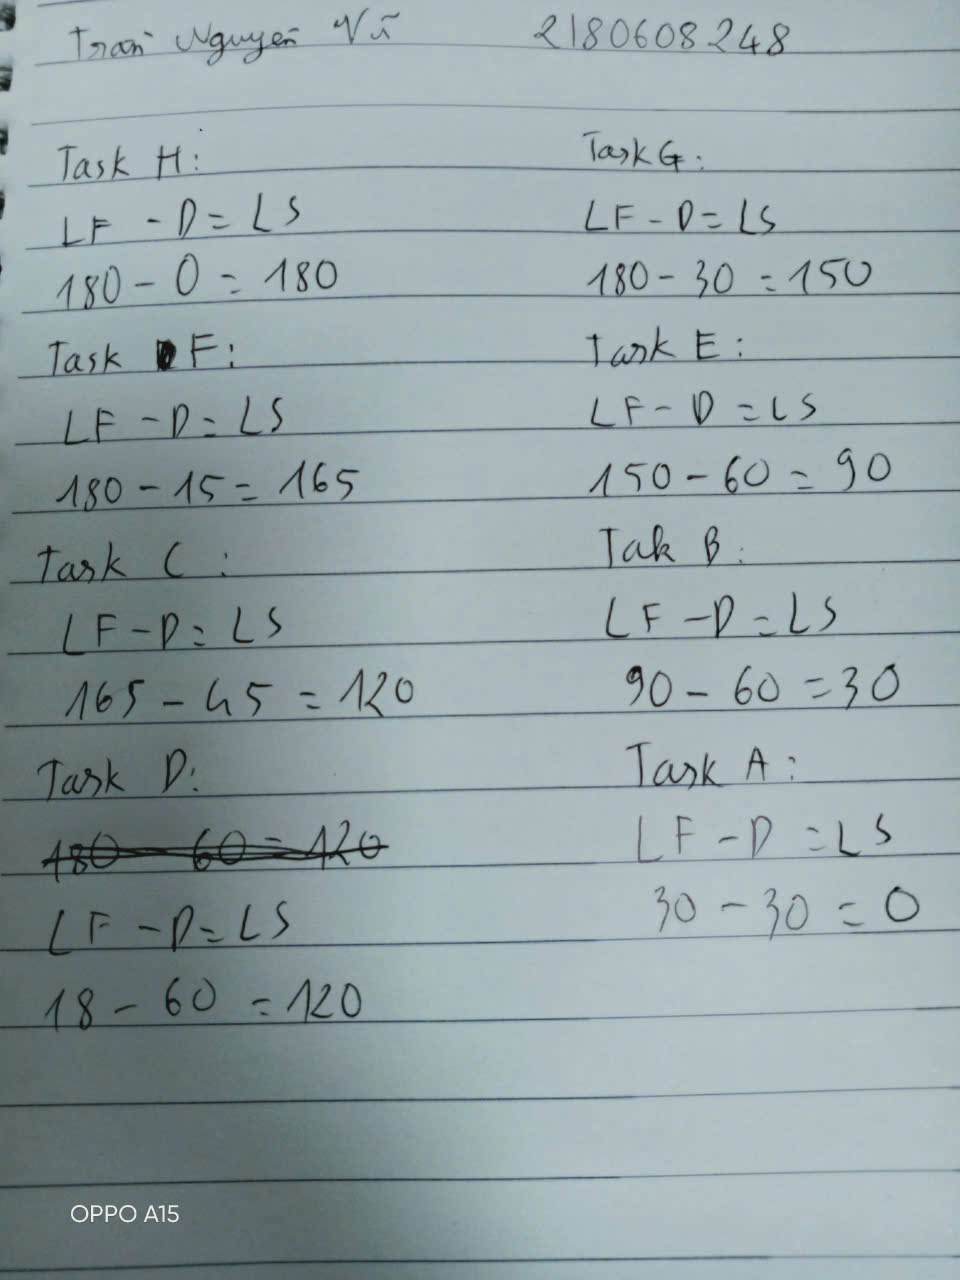 Trần Nguyên Vũ 2180608248
Task H:
LF - D = LS
180 - 0 = 180
Task F:
LF - D = LS
180 - 15 = 165
Task C :
LF - D = LS
165 - 45 = 120
Task D:
180 - 60 = 120
LF - D = LS
18 - 60 = 120
Task G:
LF - D = LS
180 - 30 = 150
Task E:
LF - D = LS
150 - 60 = 90
Tak B:
LF - D = LS
90 - 60 = 30
Task A:
LF - D = LS
30 - 30 = 0
OPPO A15